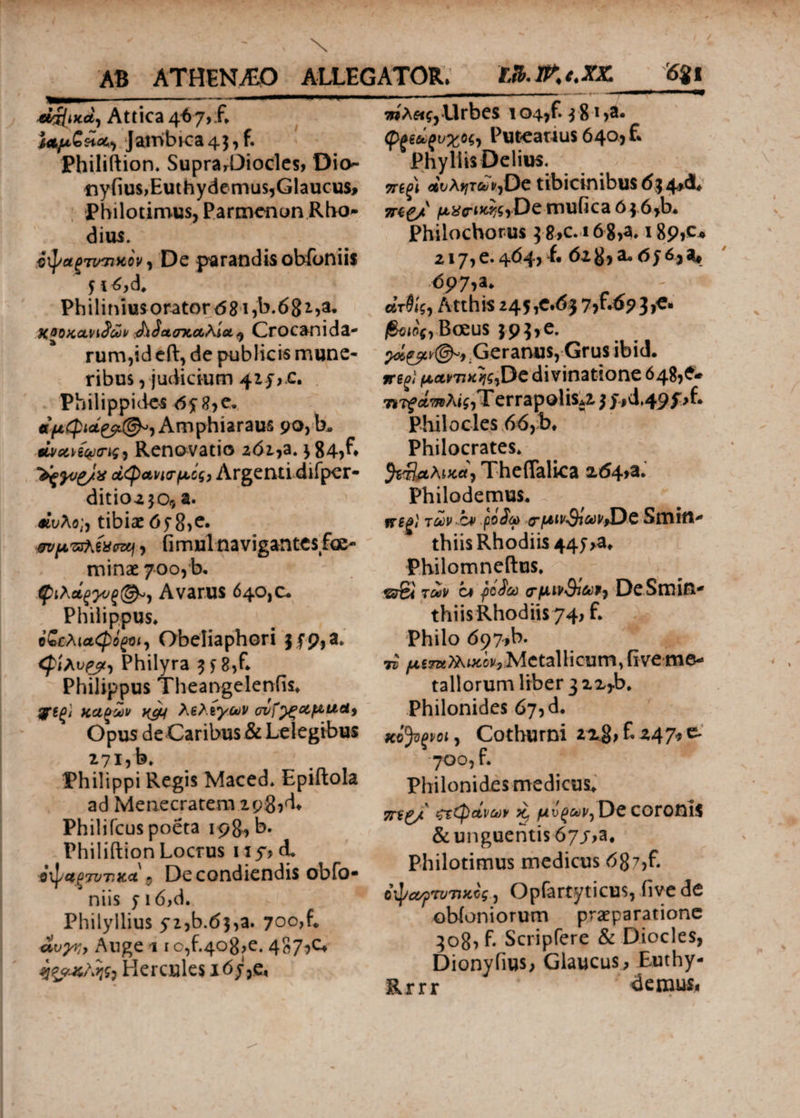 AB ATHENÆO ALLEGATOR. Lib. IV. c. XX. 681
ἀτ]ικὰ, Attica 467, f.
ἰαμϐεῖα, Jambica 43, f.
Philiſtion. Supra, Diocles, Dio-
nyſius, Euthydemus, Glaucus,
Philotimus, Parmenon Rho-
dius.
ὀψαρτυτικὸν, De parandis obſoniis
516, d.
Philinius orator 681, b. 682, a.
κροκανιδῶν διδασκαλία, Crocanida-
rum, id eſt, de publicis mune-
ribus, judicium 425, c.
Philippides 658, e.
ἀμφιάραος, Amphiaraus 90, b.
ἀνανέωσις, Renovatio 262, a. 384, f.
ἀργυρίου ἀφανισμὸς, Argenti diſper-
ditio 230, a.
αὐλοὶ, tibiæ 658, e.
συμπλέουσαι, ſimul navigantes fœ-
minæ 700, b.
φιλάργυρος, Avarus 640, c.
Philippus.
ὀϐελιαφόροι, Obeliaphori 359, a.
φίλυρα, Philyra 358, f.
Philippus Theangelenſis.
περὶ καρῶν καὶ λελέγων σύγγραμμα,
Opus de Caribus & Lelegibus
271, b.
Philippi Regis Maced. Epiſtola
ad Menecratem 298, d.
Philiſcus poëta 198, b.
Philiſtion Locrus 115, d.
ὀψαρτυτικὰ, De condiendis obſo-
niis 516, d.
Philyllius 52, b. 63, a. 700, f.
αὐγὴ, Auge 110, f. 408, e. 487, c.
ἡρακλῆς, Hercules 165, e.
πόλεις, Urbes 104, f. 381, a.
φρεώρυχος, Putearius 640, f.
Phyllis Delius.
περὶ αὐλητῶν, De tibicinibus 634, d.
περὶ μουσικῆς, De muſica 636, b.
Philochorus 38, c. 168, a. 189, c.
217, e. 464, f. 628, a. 656, a.
697, a.
ἀτθὶς, Atthis 245, c. 637, f. 693, e.
βοιὸς, Bœus 393, e.
γέρανος, Geranus, Grus ibid.
περὶ μαντικῆς, De divinatione 648, e.
τετράπολις, Terrapolis 235, d. 495, f.
Philocles 66, b.
Philocrates.
θετ]αλικὰ, Theſſalica 264, a.
Philodemus.
περὶ τῶν ἐν ῥόδῳ σμινθίων, De Smin-
thiis Rhodiis 445, a.
Philomneſtus.
περὶ τῶν ἐν ῥόδῳ σμινθίων, De Smin-
thiis Rhodiis 74, f.
Philo 697, b.
τὸ μεταλλικὸν, Metallicum, ſive me-
tallorum liber 322, b.
Philonides 67, d.
κόθορνοι, Cothurni 228, f. 247, e.
700, f.
Philonides medicus.
περὶ στεφάνων καὶ μύρων, De coronis
& unguentis 675, a.
Philotimus medicus 687, f.
ὀψαρτυτικὸς, Opſartyticus, ſive de
obſoniorum præparatione
308, f. Scripſere & Diocles,
Dionyſius, Glaucus, Euthy-
Rrrr demus,